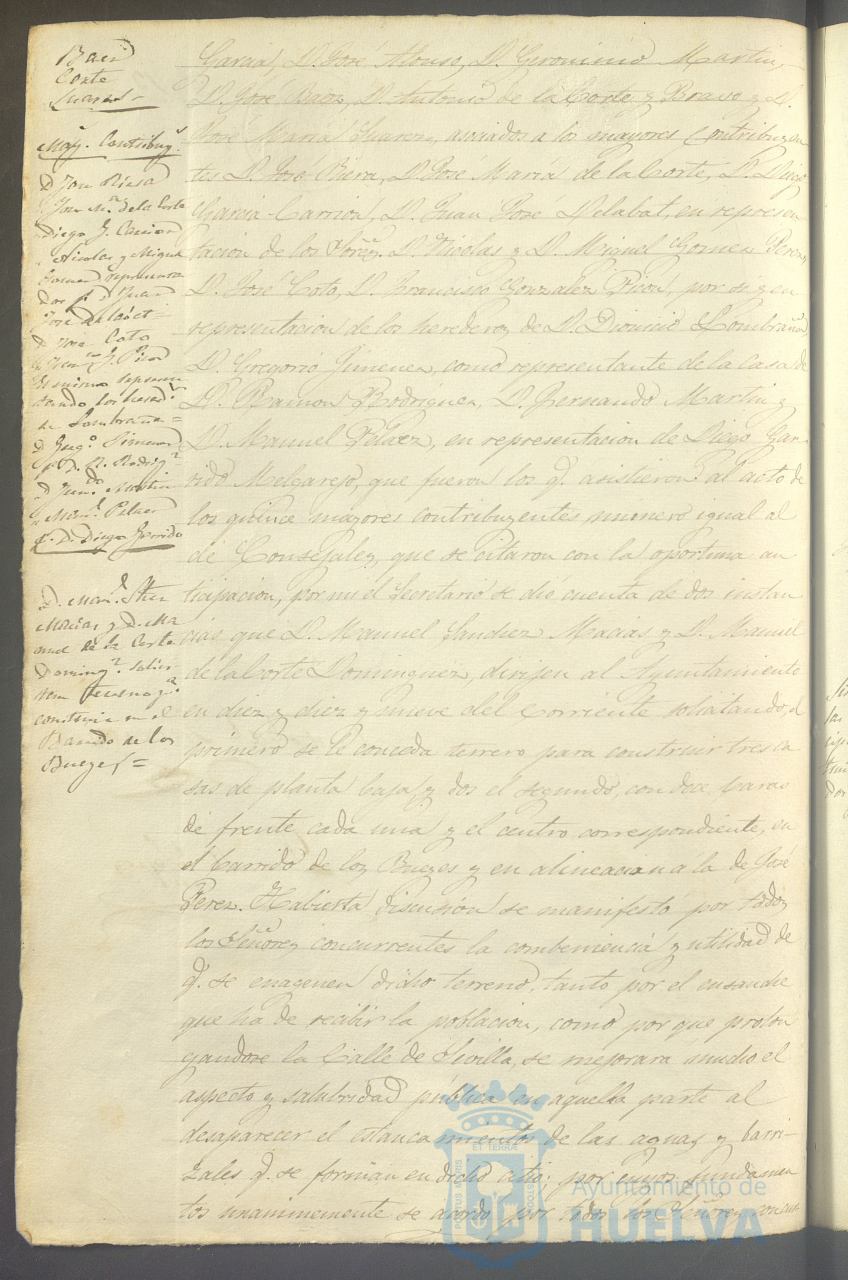 Baez
Corte
Suarez
May.s Contribuy.s
D. José Riera
José M.a de la Corte
Diego G. Carrion
Nicolas y Miguel
Gomez representa
dos p.r D. Juan
José de
D. José Coto
Fran.co G. Picon
El mismo represen
tando los hered.s
de Lombraña =
D. Greg.o Gimenez
p.r D. R. Rodrig.z
D. Fern.do Martin
Man.l Pelaez
p.r D. Diego Garrido
D. Man.l Sanchez
Macias y D. Ma
nuel de la Corte
Doming.z solici-
tan terreno p.a
construir en el
Barrido de los
Bueyes =
Garcia, D. José Alonso, D. Geronimo Martin,
D. José Baez, D. Antonio de la Corte y Bravo y D.
José Maria Suarez, asociados a los mayores Contribuyen
tes D. José Riera, D. José Maria de la Corte, D. Diego
Garcia Carrion, D. Juan José Delabat, en represen
tacion de los Sores. D. Nicolas y D. Miguel Gomez Perez,
D. José Coto, D. Francisco Gonzalez Picon, por si y en
representacion de los herederos de D. Dionicio Lombraña,
D. Gregorio Gimenez, como representante de la casa de
D. Ramon Rodriguez, D. Fernando Martin y
D. Manuel Pelaez, en representacion de Diego Gar
rido Melgarejo, que fueron los q.e asistieron al acto de
los quince mayores contribuyentes numero igual al
de Consejales, que se citaron con la oportuna an
ticipacion, por mi el Secretario se dió cuenta de dos instan
cias que D. Manuel Sanchez Macias y D. Manuel
de la Corte Dominguez, dirijen al Ayuntamiento
en diez y diez y nueve del corriente solicitando, el
primero se le conceda terreno para construir tres ca
sas de planta baja, y dos el segundo, con doce baras
de frente cada una y el centro correspondiente, en
el barrido de los Bueyes y en alineacion a la de José
Perez. Habierta discusion se manifestó por todos
los Señores concurrentes la combeniencia y utilidad de
q.e se enagenen dicho terreno, tanto por el ensanche
que ha de recibir la poblacion, como por que prolon
gandose la Calle de Sivilla, se mejorará mucho el
aspecto y salubridad publica en aquella parte al
desaparecer el estancamientos de las aguas y barri-
zales q.e se forman en dicho citio; por cuyos fundamen
tos unanimemente se acordó por todos los Señores concur
Ayuntamiento de
HUELVA